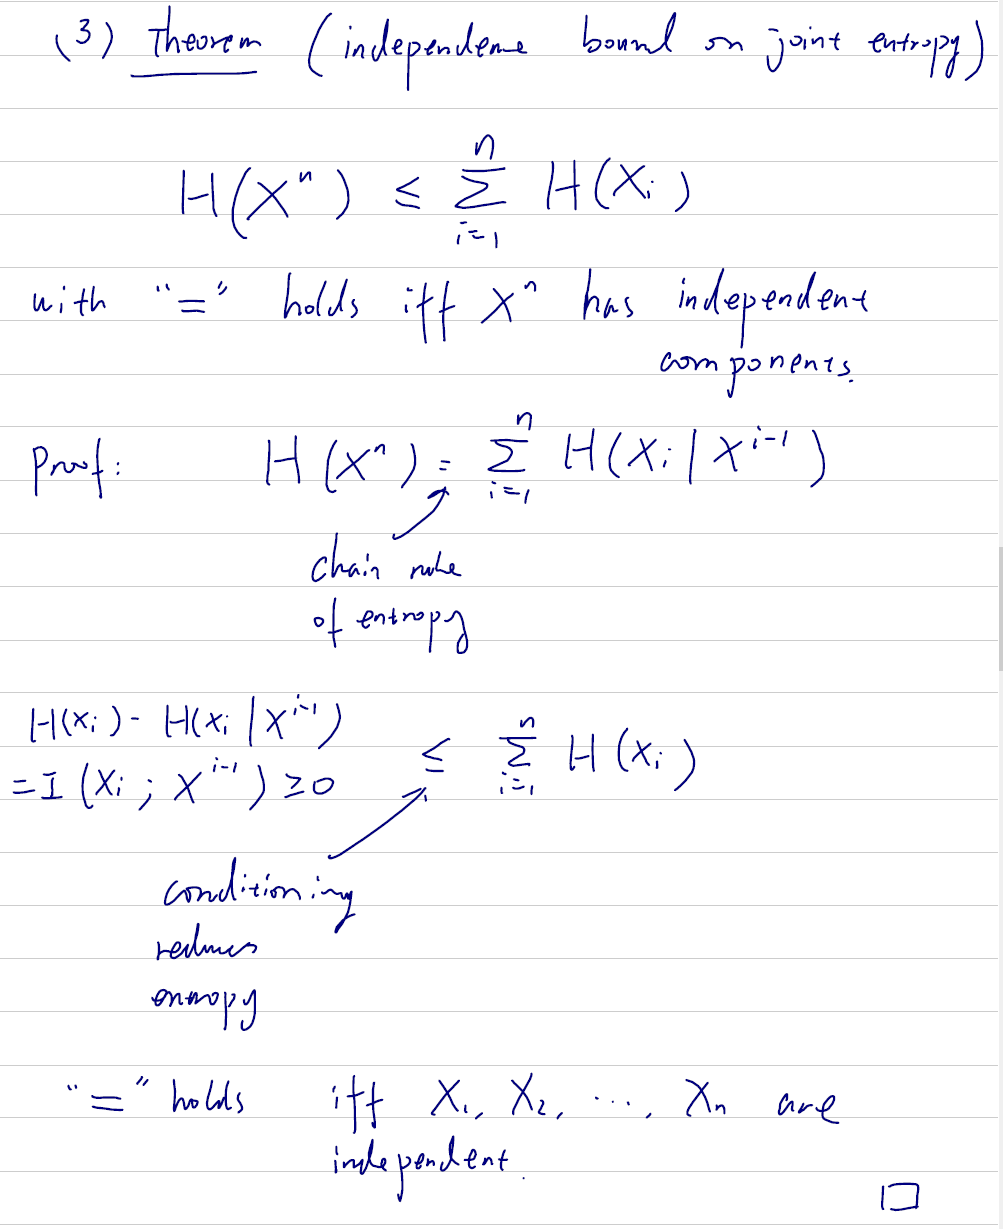 (3) Theorem (independence bound on joint entropy)
H(Xⁿ) ≤ Σ_{i=1}^{n} H(Xᵢ)
with "=" holds iff Xⁿ has independent
components.
Proof: H(Xⁿ) = Σ_{i=1}^{n} H(Xᵢ|X^{i-1})
chain rule
of entropy
H(Xᵢ) - H(Xᵢ|X^{i-1})
= I(Xᵢ; X^{i-1}) ≥ 0 ≤ Σ_{i=1}^{n} H(Xᵢ)
conditioning
reduces
entropy
"=" holds iff X₁, X₂, ..., Xₙ are
independent.
□